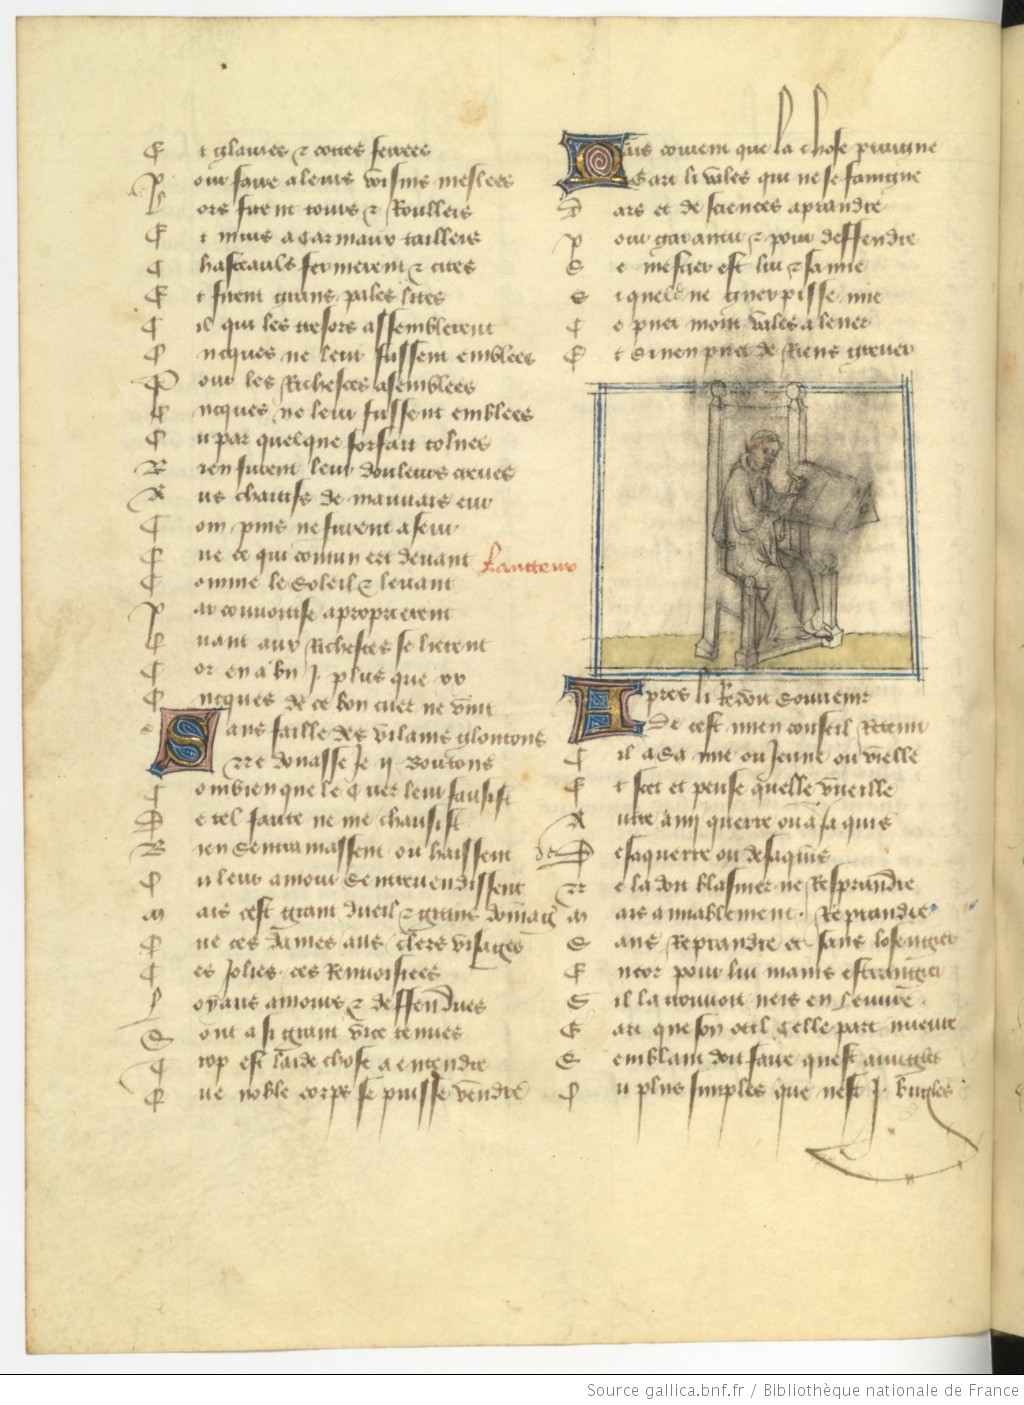 Et glaives et cottes ferrees
Pour faire a leurs voisins meslees
Lors firent tours et Roulleis
Et murs a carniaux tailleis
Chasteauls fermerent et cites
Et firent grans pales lites
Cil qui les tresors assemblerent
Oncques ne leur fussent emblees
Pour les Richesces asemblees
Oncques ne leur fussent emblees
Ou par quelque forfait tolues
Bien furent leur douleurs creues
Aus chaitifs de mauvais eur
Com puis ne furent a seur
Que ce qui comun ert devant
Lautteur
Comme le Soleil et le vant
Par convoitise aproprierent
Quant aux Richesces se lierent
Or en a bn j plus que vv
Oncques de ce bon cuer ne vint
Sans faille des vilains gloutons
ne donasse Je ij boutons
Combien que le Cuer leur fausist
De tel faute ne me chausist
Bien sentramassent ou haissent
Ou leur amour sentrevendissent
Mais cest grant dueil et grans domag
Que ces dames aus clers visages
Ces Jolies ces Renvoisiees
Loyaus amours et deffendues
Sont a si grant vite venues
Trop est laide chose a entendre
Que noble corps se puisse vendre
Mais comment que la chose praigne
Gart li vales qui ne se faingne
Dars et de sciences aprandre
Pour garantir et pour deffendre
Se mestier est lui et samie
Si quele ne guerpisse mie
Ce puet moult vales alever
Et si nen puet de Riens grever
Apres li Redoit Souvenir
De cest mien conseil Retenir
Cil a sa mie ou Jeune ou vielle
Et scet et pense quelle vueille
Autre amy querre ou a ja quis
de
De saquerre ou desaquis
Ne la doit blasmer ne Resprandre
Mais amiablement Reprandre
Sans Reprandre et sans losengier
Encor pour lui mains estrangier
Sil la trouvoit neis en leuvre
Gart que son oeil celle part nuevre
Semblant doit faire quest avugles
Ou plus simples que nest j bugles
Source gallica.bnf.fr / Bibliothèque nationale de France